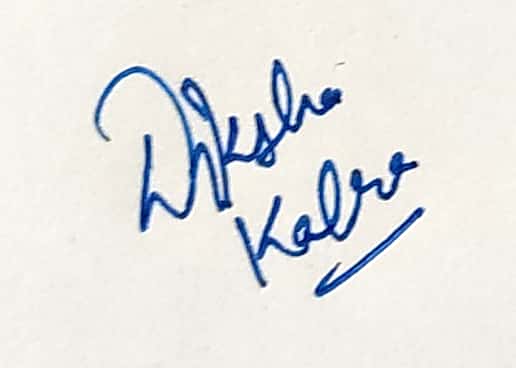 Diksha
Kabra